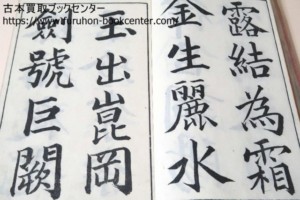 古本買取ブックセンター
https://www.furuhon-bookcenter.com/
露結為霜
金生麗水
玉出崑岡
劍號巨闕